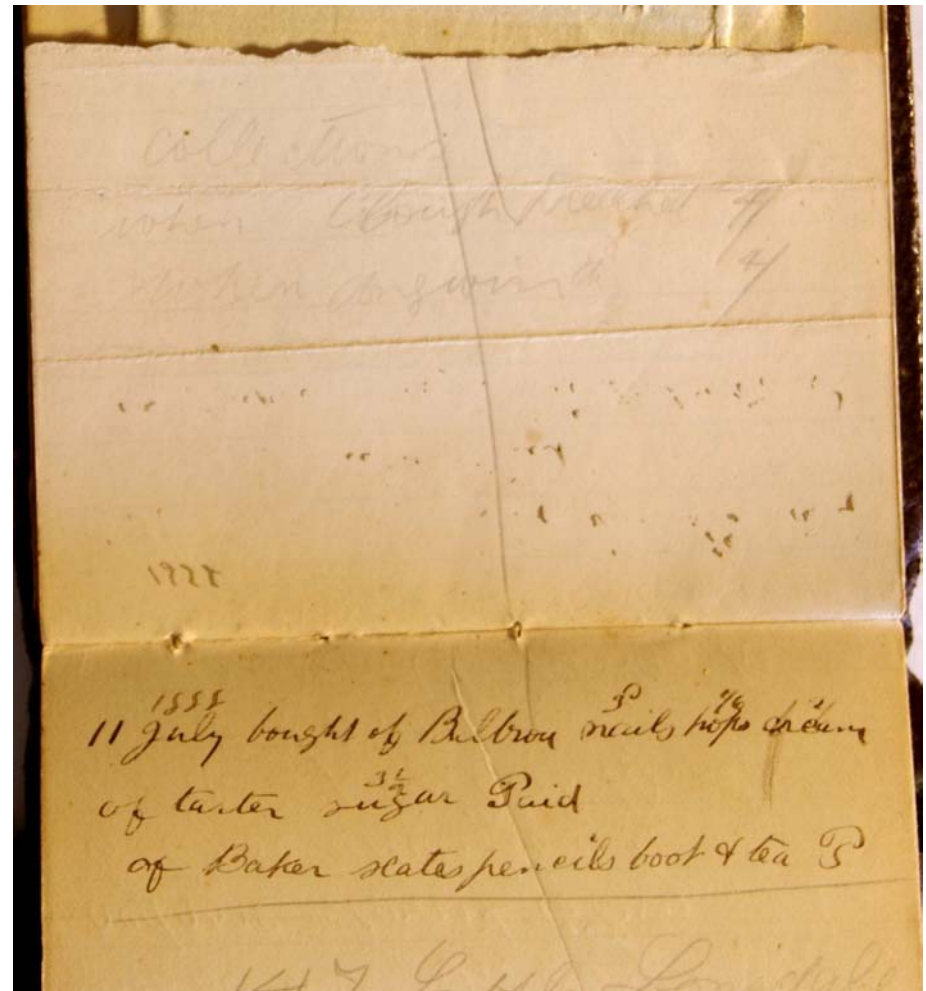 Collections
when Clough preached 4/
when Angwin d 4/
1888
1888
11 July bought of Bulbrou nails hops cream
of tarter sugar Paid
of Baker slates pencils boot & tea P
147 Little Lonsdale